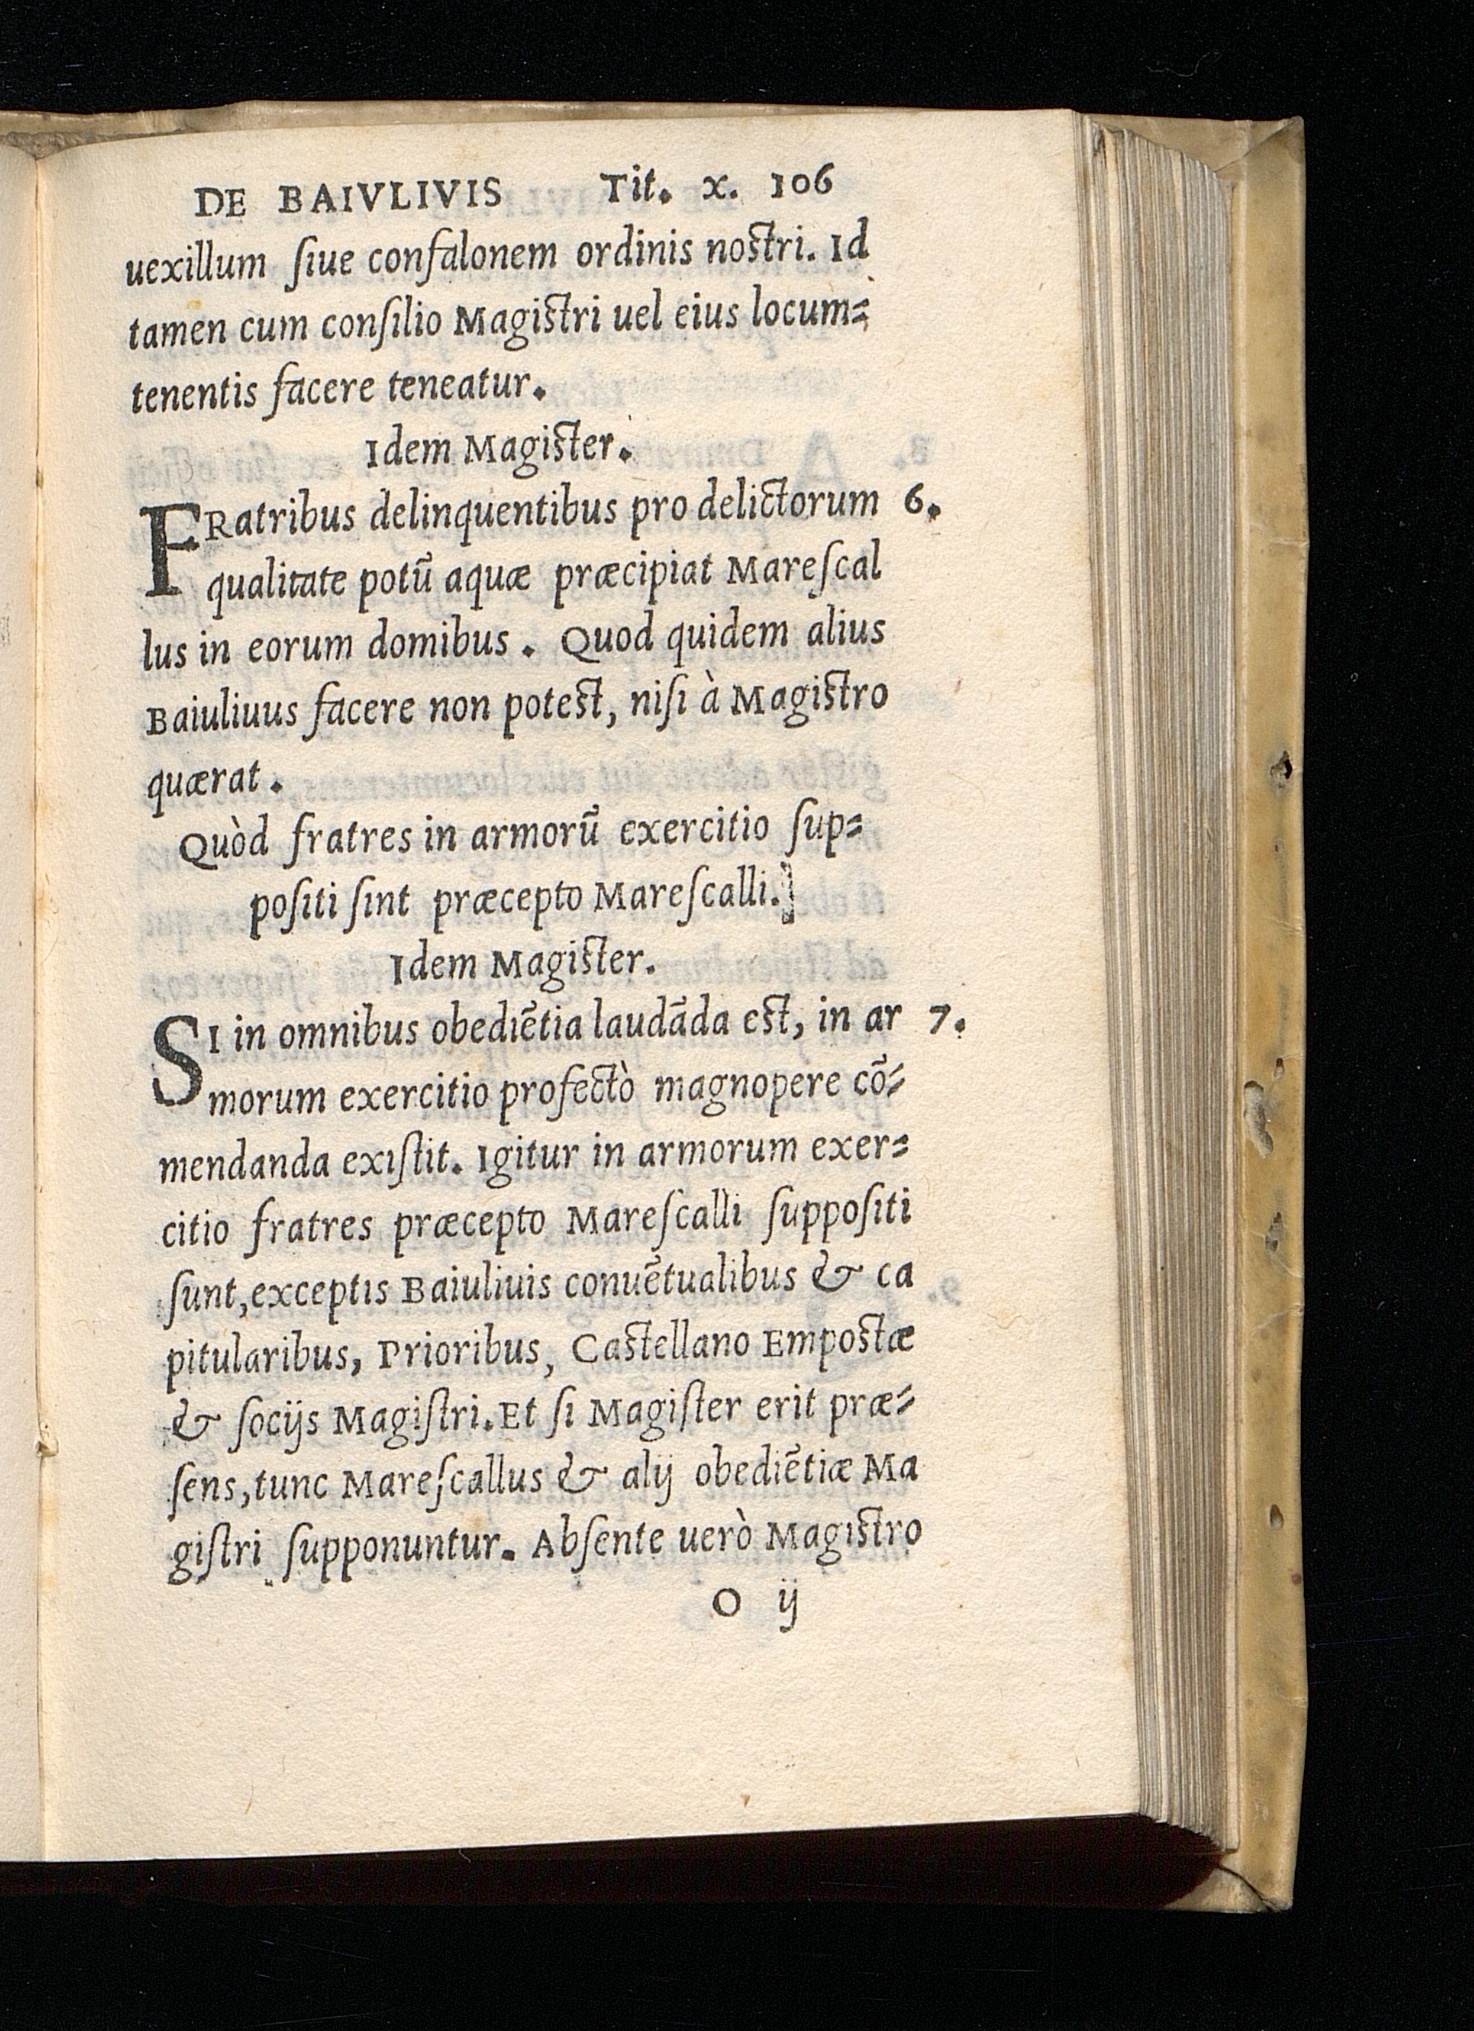 DE BAIVLIVIS Tit. x. 106
uexillum ſiue confalonem ordinis noſtri. Id
tamen cum conſilio Magiſtri uel eius locum⸗
tenentis facere teneatur.
Idem Magiſter.
FRatribus delinquentibus pro delictorum 6.
qualitate potũ aquæ præcipiat Mareſcal
lus in eorum domibus. Quod quidem alius
Baiuliuus facere non poteſt, niſi à Magiſtro
quærat.
Quòd fratres in armorũ exercitio ſup⸗
poſiti ſint præcepto Mareſcalli.
Idem Magiſter.
SI in omnibus obediẽtia laudãda eſt, in ar 7.
morum exercitio profectò magnopere cõ⸗
mendanda exiſtit. Igitur in armorum exer⸗
citio fratres præcepto Mareſcalli ſuppoſiti
ſunt, exceptis Baiuliuis conuẽtualibus & ca
pitularibus, Prioribus, Caſtellano Empoſtæ
& ſocijs Magiſtri. Et ſi Magiſter erit præ⸗
ſens, tunc Mareſcallus & alij obediẽtiæ Ma
giſtri ſupponuntur. Abſente uerò Magiſtro
O ij